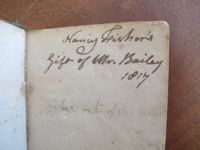 Nancy Fisher's
Gift of Mr. Bailey
1817